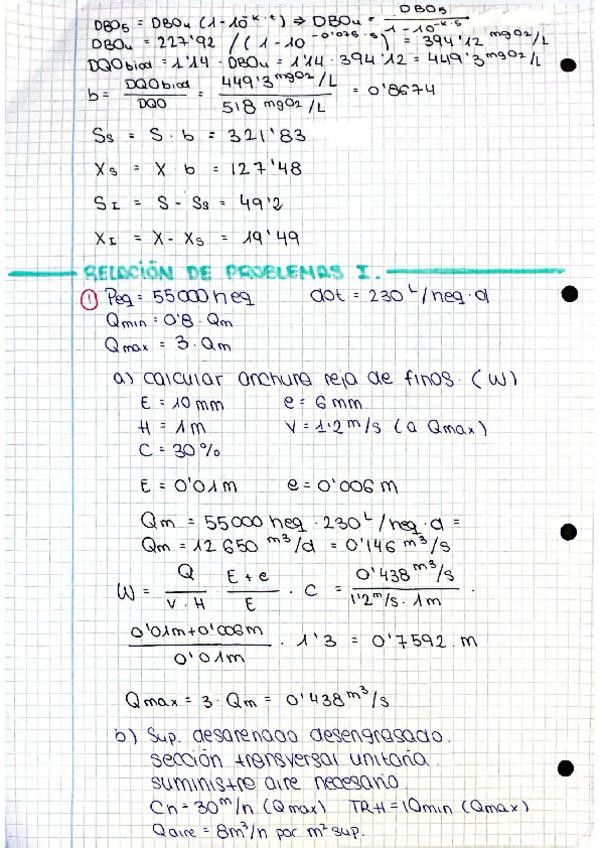 DBO5 = DBOu (1-10^-k·t) ⇒ DBOu = DBO5 / 1-10^-k·5
DBOu = 227'92 / (1-10^-0'075·5) = 394'12 mgO2/L
DQObiod = 1'14 · DBOu = 1'14 · 394'12 = 449'3 mgO2/L
b = DQObiod / DQO = 449'3 mgO2/L / 518 mgO2/L = 0'8674
Ss = S · b = 321'83
Xs = X · b = 127'48
SI = S - Ss = 49'2
XI = X - Xs = 19'49
RELACIÓN DE PROBLEMAS I.
① Peq = 55000 heq dot = 230 L/heq·d
Qmin = 0'8 · Qm
Qmax = 3 · Qm
a) calcular anchura reja de finos. (W)
E = 10 mm e = 6 mm
H = 1 m V = 1'2 m/s (a Qmax)
C = 30 %
E = 0'01 m e = 0'006 m
Qm = 55000 heq · 230 L/heq·d =
Qm = 12 650 m³/d = 0'146 m³/s
W = Q / V·H · E+e / E · C = 0'438 m³/s / 1'2 m/s · 1m ·
0'01m+0'006m / 0'01m · 1'3 = 0'7592 m
Qmax = 3 · Qm = 0'438 m³/s
b) Sup. desarenado desengrasado.
sección transversal unitaria.
suministre aire necesario.
CH = 30 m/h (Qmax) TRH = 10min (Qmax)
Qaire = 8m³/h por m² sup.